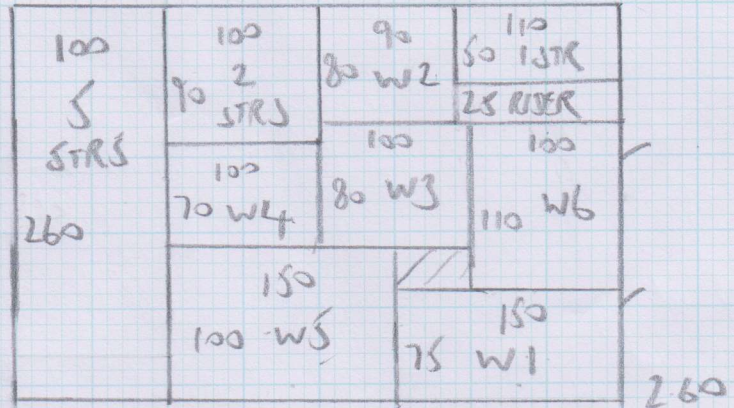 100
5
STRS
260
100
90 2
STRS
90
80 W2
110
50 1 STR
25 RISER
100
70 W4
100
80 W3
100
110 W6
150
100 W5
150
75 W1
260